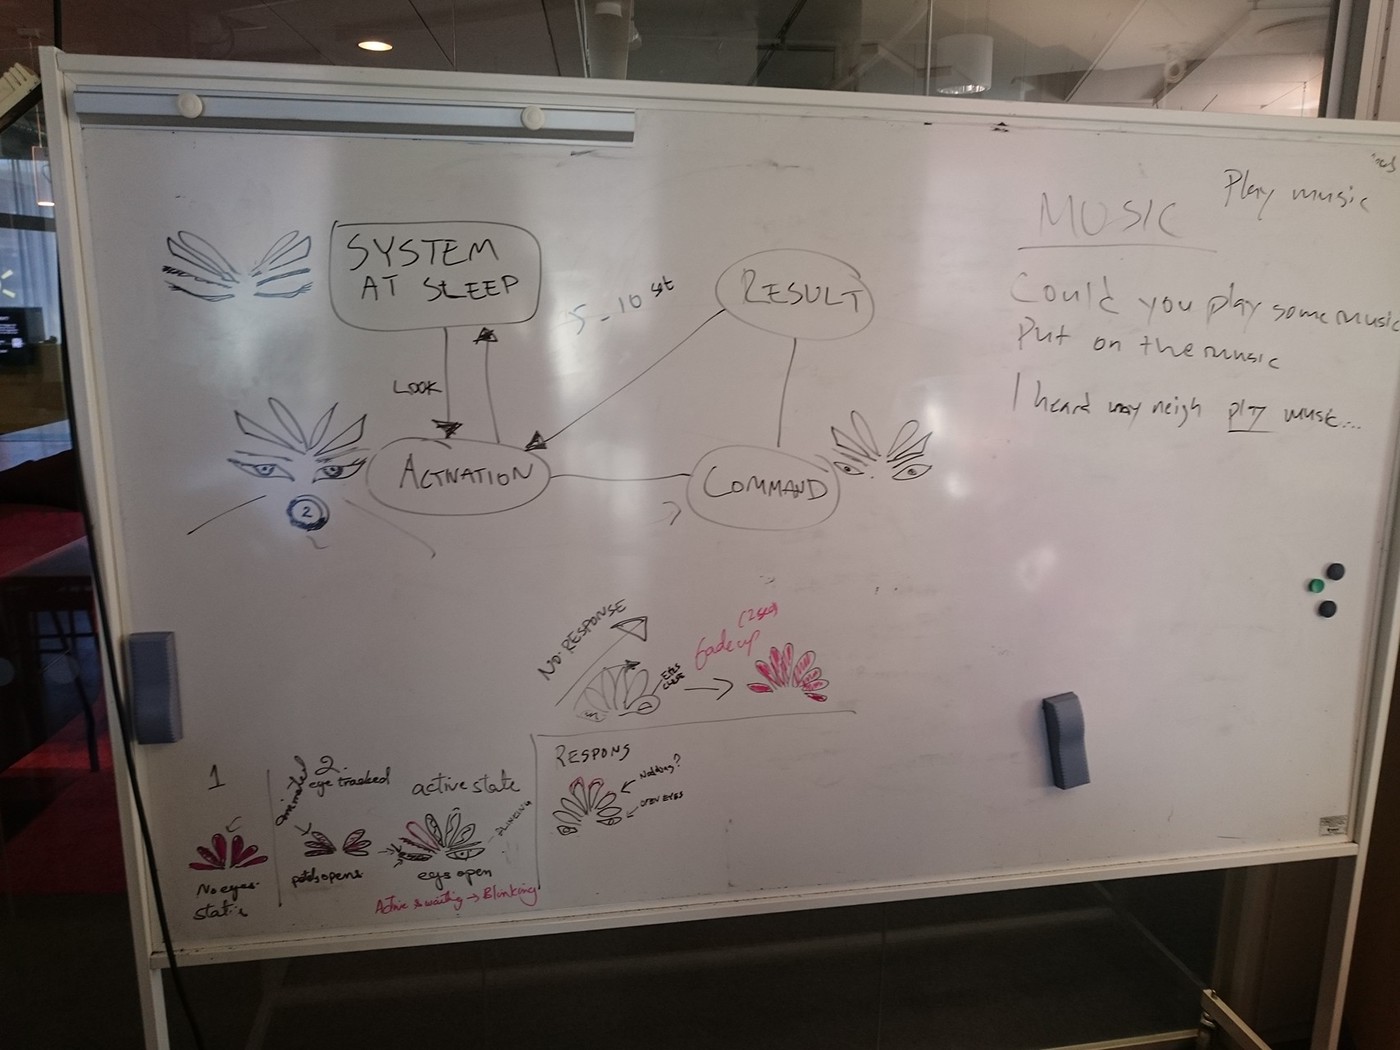 SYSTEM
AT SLEEP
LOOK
ACTIVATION
2
5-10 st
RESULT
COMMAND
?
MUSIC
Play music
Could you play some music
Put on the music
I heard my neigh play music...
NO RESPONSE
EYES
CLOSE
fade up
(2sec)
RESPONS
Nodding?
OPEN EYES
1
No eyes.
static
2.
eye tracked
animated
petals opens
active state
BLINKING
eyes open
Active & waiting → Blinking